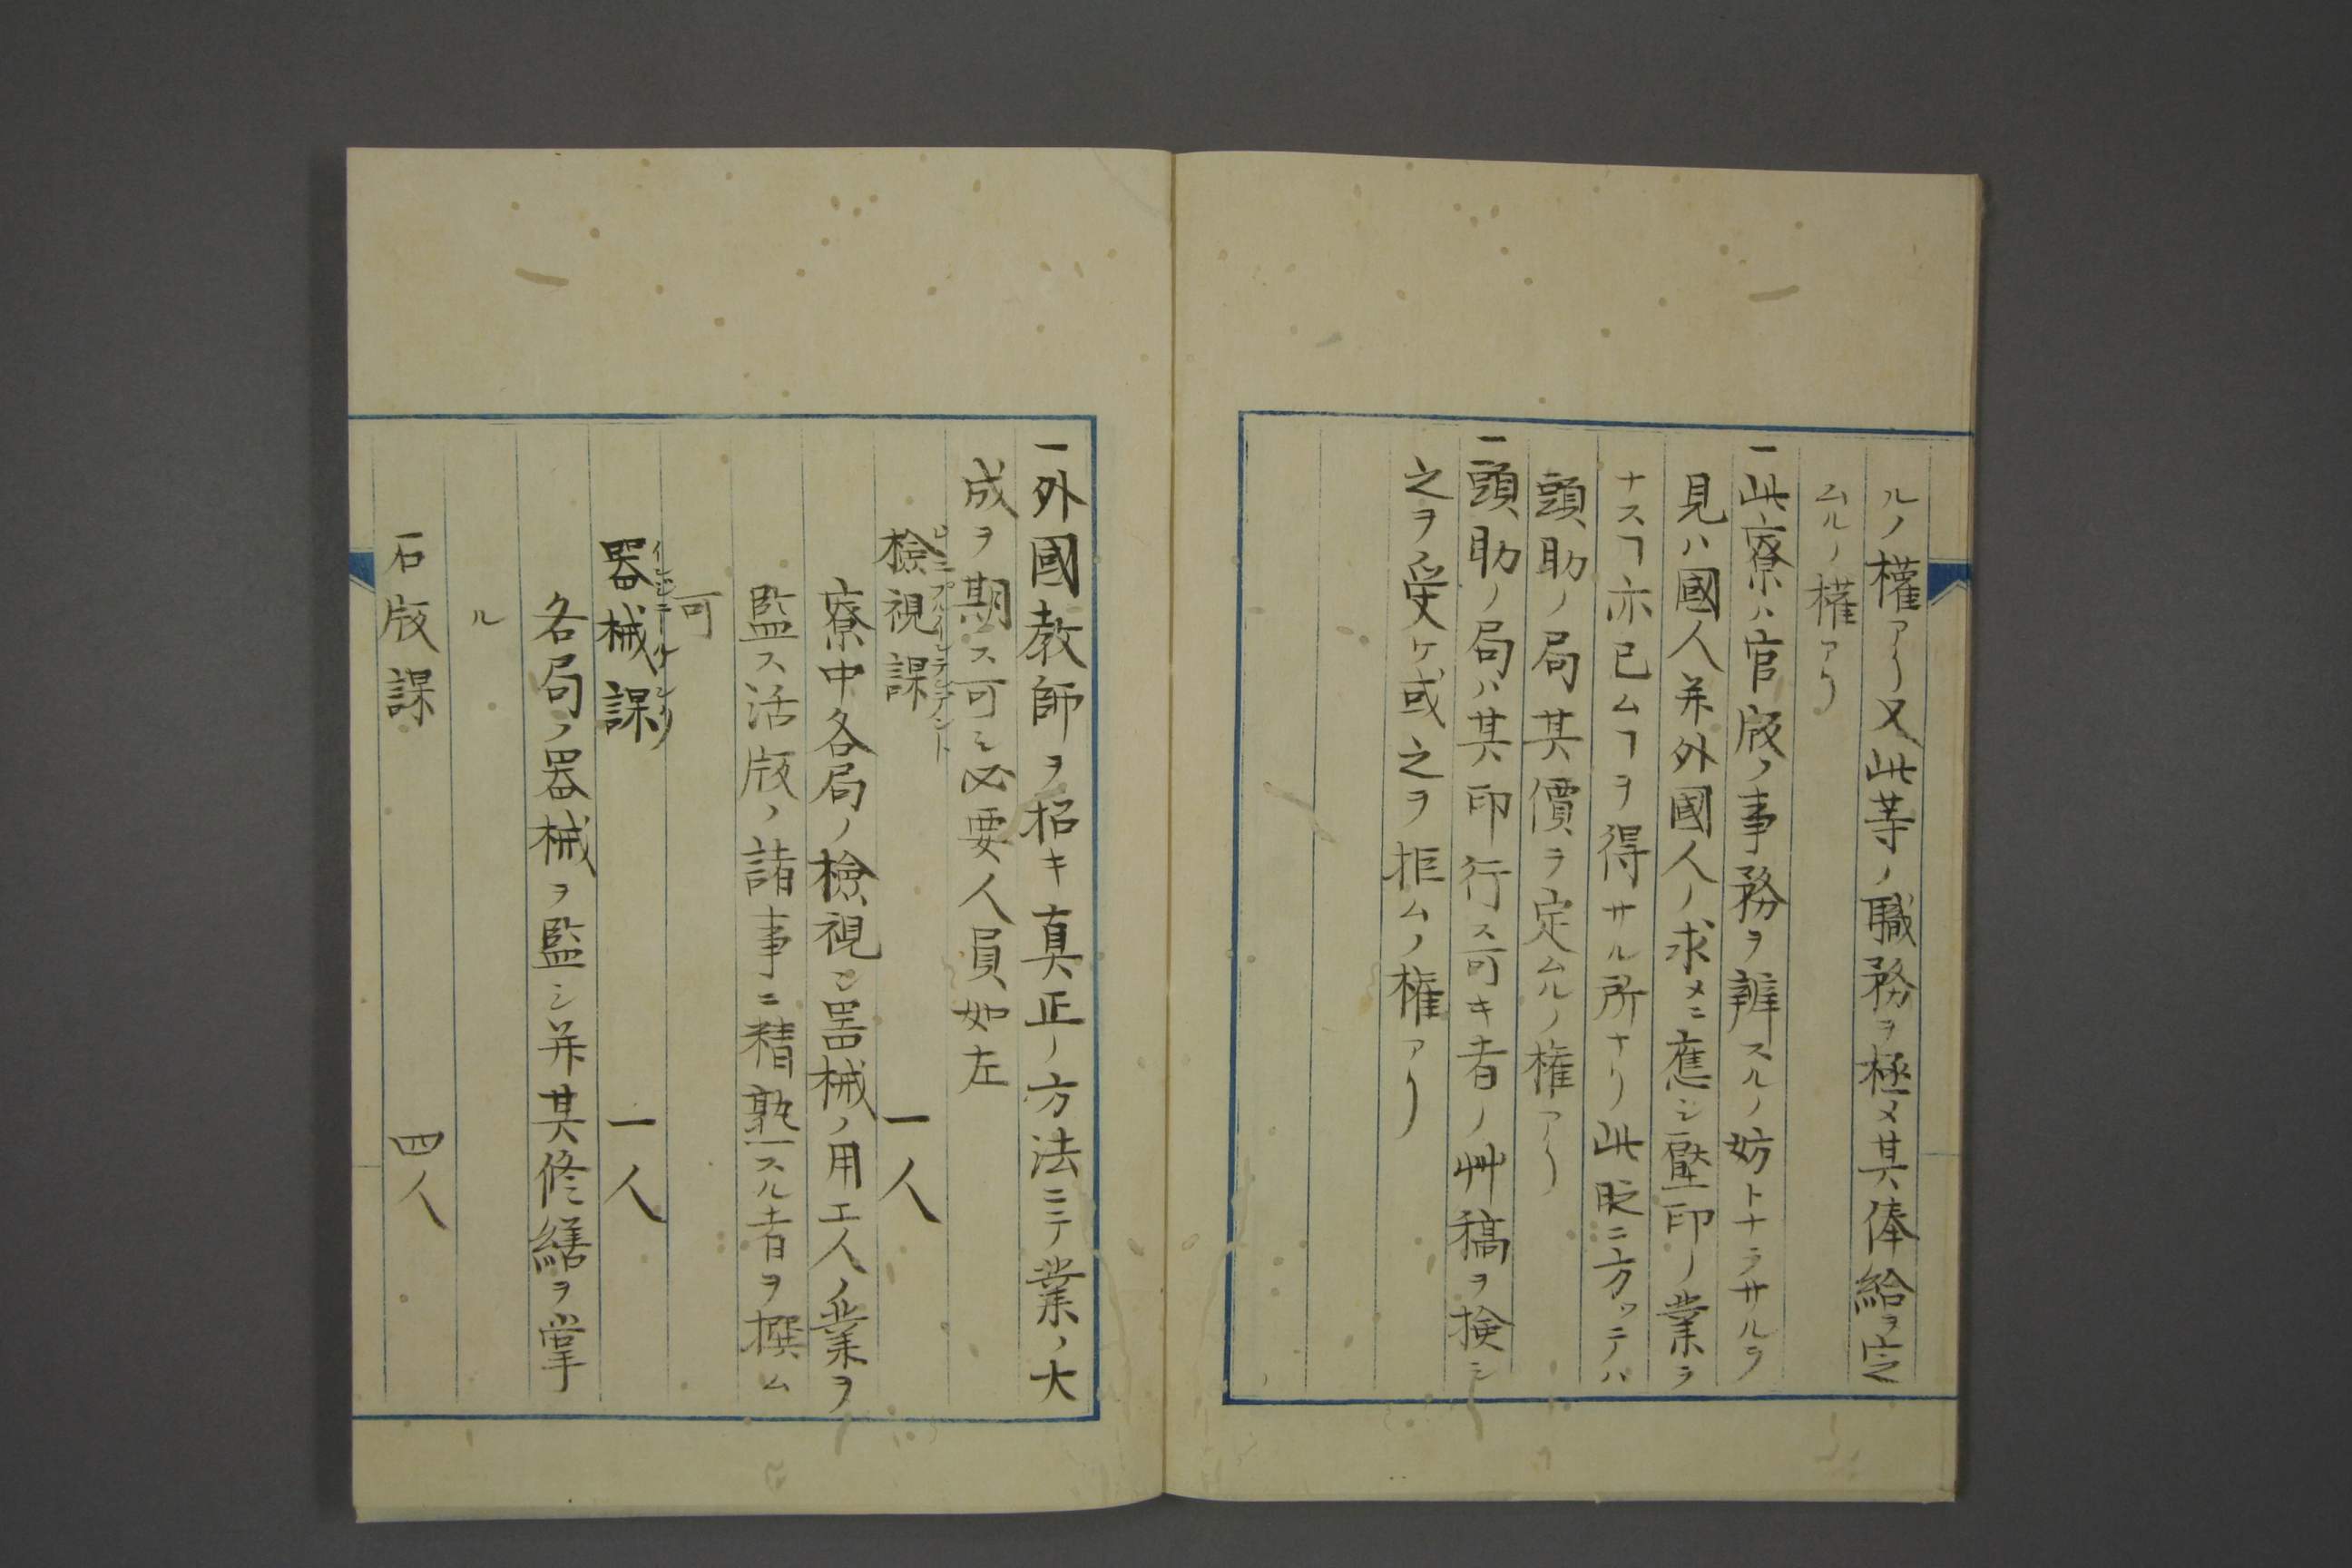 ルノ權アリ又此等ノ職務ヲ極メ其俸給ヲ定
ムルノ權アリ
一此寮ハ官版ノ事務ヲ辨スルノ妨トナラサルヲ
見ハ國人并外國人ノ求メニ應シ壓印ノ業ヲ
ナスヿ亦已ムヿヲ得サル所ナリ此時ニ方ッテハ
頭助ノ局其價ヲ定ムルノ権アリ
一頭助ノ局ハ其印行ス可キ者ノ艸稿ヲ検シ
之ヲ受ケ或之ヲ拒ムノ権アリ
一外國教師ヲ招キ真正ノ方法ニテ業ノ大
成ヲ期ス可シ必要人員如左
檢視課 一人
寮中各局ノ檢視シ噐械ノ用工人ノ業ヲ
監ス活版ノ諸事ニ精熟スル者ヲ撰ム
可
器械課 一人
各局ノ器械ヲ監シ并其修繕ヲ掌
ル
石版課 四人